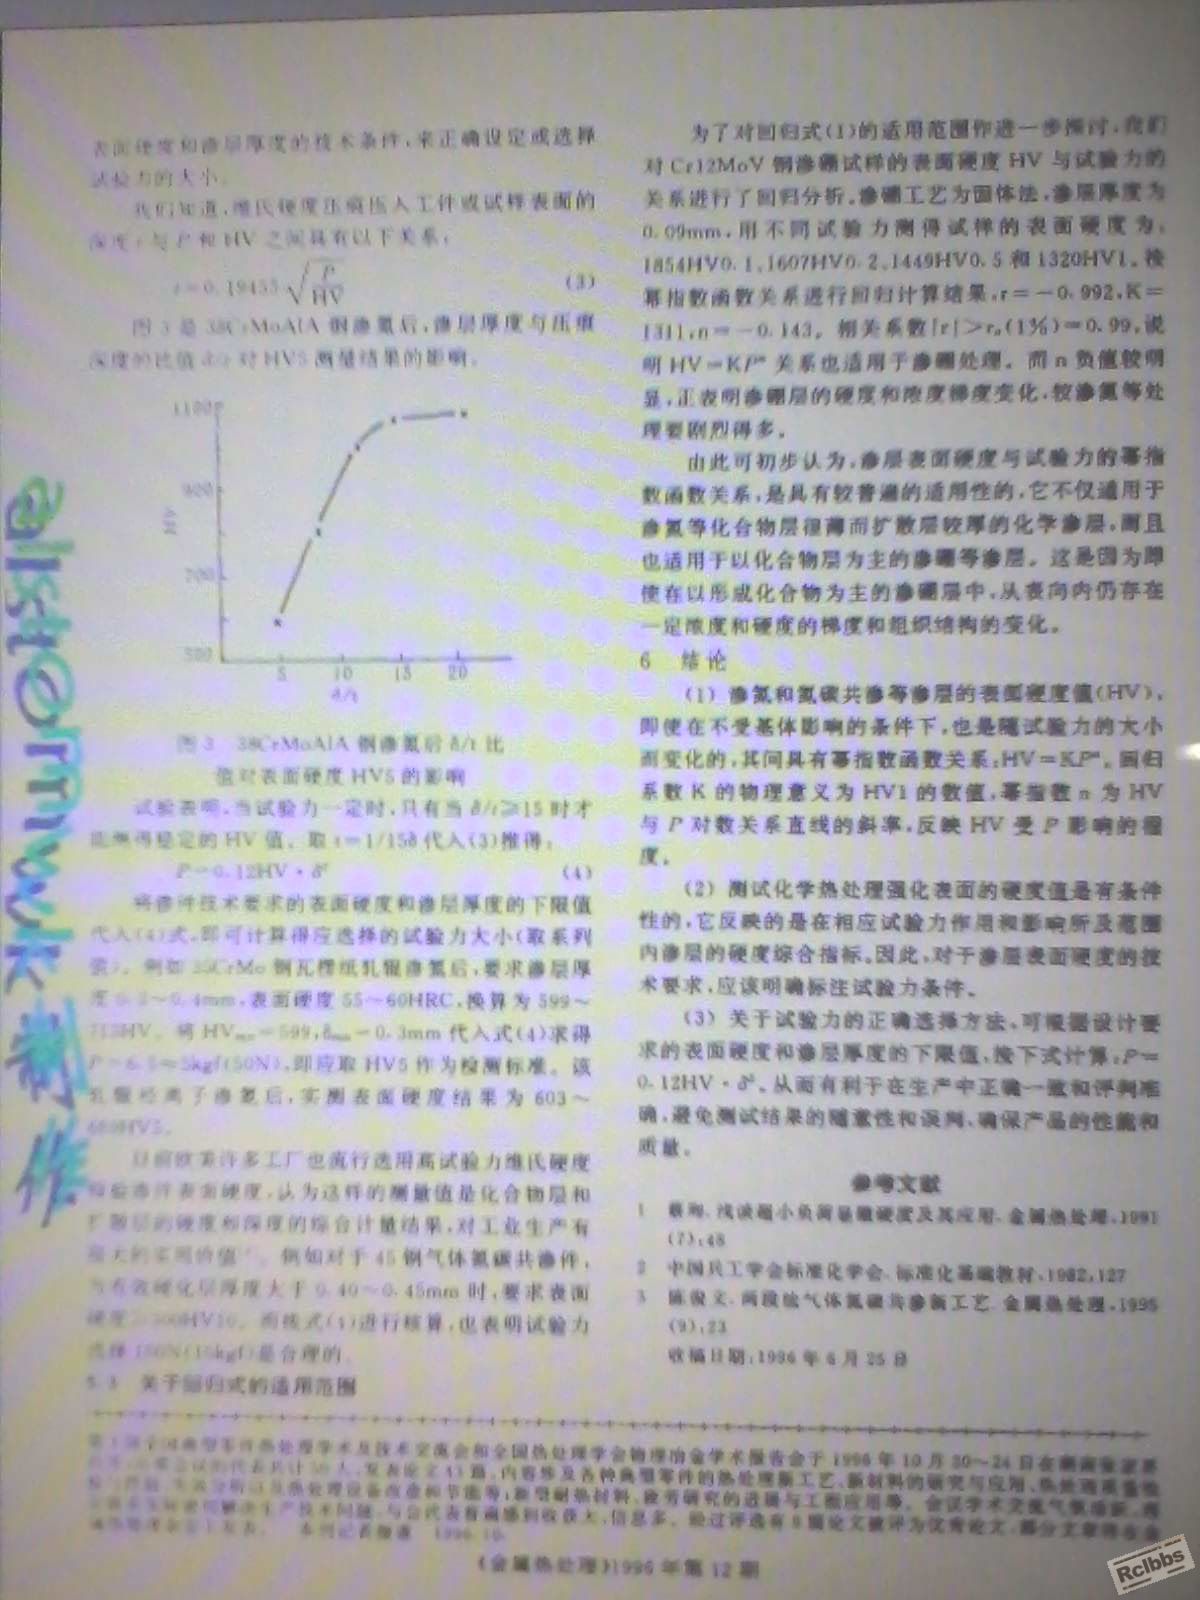 表面硬度和渗层厚度的技术条件,来正确设定或选择
试验力的大小。
我们知道,维氏硬度压痕压入工件或试样表面的
深度t与P和HV之间具有以下关系:
t=0.19455√(P/HV) (3)
图3是38CrMoAlA钢渗氮后,渗层厚度与压痕
深度的比值δ/t对HV5测量结果的影响。
1100
900
700
500
HV
5 10 15 20
δ/t
图3 38CrMoAlA钢渗氮后δ/t比
值对表面硬度HV5的影响
试验表明,当试验力一定时,只有当δ/t≥15时才
能获得稳定的HV值。取t=1/15δ代入(3)推得:
P=0.12HV·δ² (4)
将渗件技术要求的表面硬度和渗层厚度的下限值
代入(4)式,即可计算得应选择的试验力大小(取系列
值)。例如35CrMo钢瓦楞纸轧辊渗氮后,要求渗层厚
度0.3~0.4mm,表面硬度55~60HRC,换算为599~
713HV。将HVmin=599,δmin=0.3mm代入式(4)求得
P=6.5≈5kgf(50N),即应取HV5作为检测标准。该
轧辊经离子渗氮后,实测表面硬度结果为603~
HV5。
目前欧美许多工厂也流行选用高试验力维氏硬度
检验渗件表面硬度,认为这样的测量值是化合物层和
扩散层的硬度和深度的综合计量结果,对工业生产有
很大的实用价值。例如对于45钢气体氮碳共渗件,
当有效硬化层厚度大于0.40~0.45mm时,要求表面
硬度≥300HV10。而按式(4)进行核算,也表明试验力
选择150N(15kgf)是合理的。
5.3 关于回归式的适用范围
为了对回归式(1)的适用范围作进一步探讨,我们
对Cr12MoV钢渗硼试样的表面硬度HV与试验力的
关系进行了回归分析。渗硼工艺为固体法,渗层厚度为
0.09mm,用不同试验力测得试样的表面硬度为:
1854HV0.1、1607HV0.2、1449HV0.5和1320HV1。按
幂指数函数关系进行回归计算结果,r=-0.992,K=
1311,n=-0.143。相关系数|r|>rₐ(1%)=0.99,说
明HV=KPⁿ关系也适用于渗硼处理。而n负值较明
显,正表明渗硼层的硬度和浓度梯度变化,较渗氮等处
理要剧烈得多。
由此可初步认为,渗层表面硬度与试验力的幂指
数函数关系,是具有较普遍的适用性的,它不仅适用于
渗氮等化合物层很薄而扩散层较厚的化学渗层,而且
也适用于以化合物层为主的渗硼等渗层。这是因为即
使在以形成化合物为主的渗硼层中,从表向内仍存在
一定浓度和硬度的梯度和组织结构的变化。
6 结论
(1) 渗氮和氮碳共渗等渗层的表面硬度值(HV),
即使在不受基体影响的条件下,也是随试验力的大小
而变化的,其间具有幂指数函数关系:HV=KPⁿ。回归
系数K的物理意义为HV1的数值,幂指数n为HV
与P对数关系直线的斜率,反映HV受P影响的程
度。
(2) 测试化学热处理强化表面的硬度值是有条件
性的,它反映的是在相应试验力作用和影响所及范围
内渗层的硬度综合指标。因此,对于渗层表面硬度的技
术要求,应该明确标注试验力条件。
(3) 关于试验力的正确选择方法,可根据设计要
求的表面硬度和渗层厚度的下限值,按下式计算:P=
0.12HV·δ²。从而有利于在生产中正确一致和评判准
确,避免测试结果的随意性和误判,确保产品的性能和
质量。
参考文献
1 蔡珣.浅谈超小负荷显微硬度及其应用.金属热处理,1991
(7):48
2 中国兵工学会标准化学会.标准化基础教材,1982,127
3 陈俊文.两段法气体氮碳共渗新工艺.金属热处理,1995
(9):23
收稿日期:1996年6月25日
全国典型零件热处理学术及技术交流会和全国热处理学会物理冶金学术报告会于1996年10月20~24日在湖南张家界
内容涉及各种典型零件的热处理新工艺、新材料的研究与应用、
新型耐热材料、疲劳研究的进展与工程应用等。会议学术交流气氛
与会代表普遍感到收获大,信息多。经过评选有8篇论文被评为优秀论文,部分文章将在
本刊记者 1996.10.
《金属热处理》1996年第12期
alstormwk
作
Rclbbs